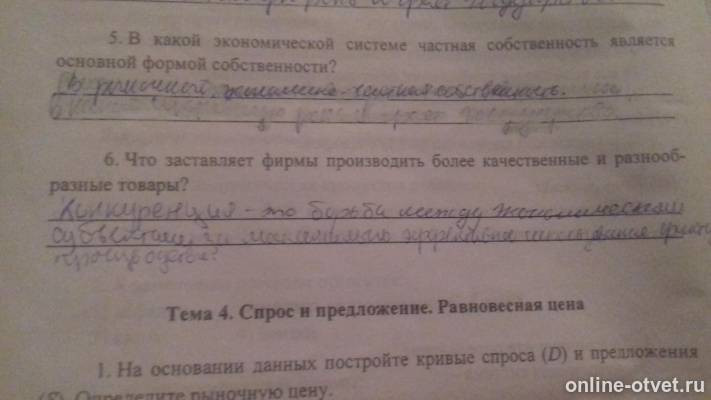 5. В какой экономической системе частная собственность является
основной формой собственности?
В рыночной экономике - частная собственность.
6. Что заставляет фирмы производить более качественные и разнооб-
разные товары?
Конкуренция - это борьба между экономическими
субъектами за максимально эффективное использование
производства
Тема 4. Спрос и предложение. Равновесная цена
1. На основании данных постройте кривые спроса (D) и предложения
(S). Определите рыночную цену.
online-otvet.ru